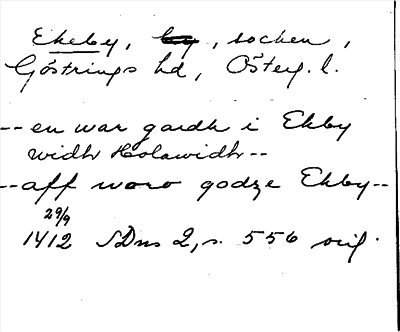 Ekeby, by, socken,
Göstrings hd, Österg. l.
-- en war gardh i Ekby
widh Holawidh --
-- aff woro godze Ekby --
29/9
1412 SDns 2, s. 556 orig.